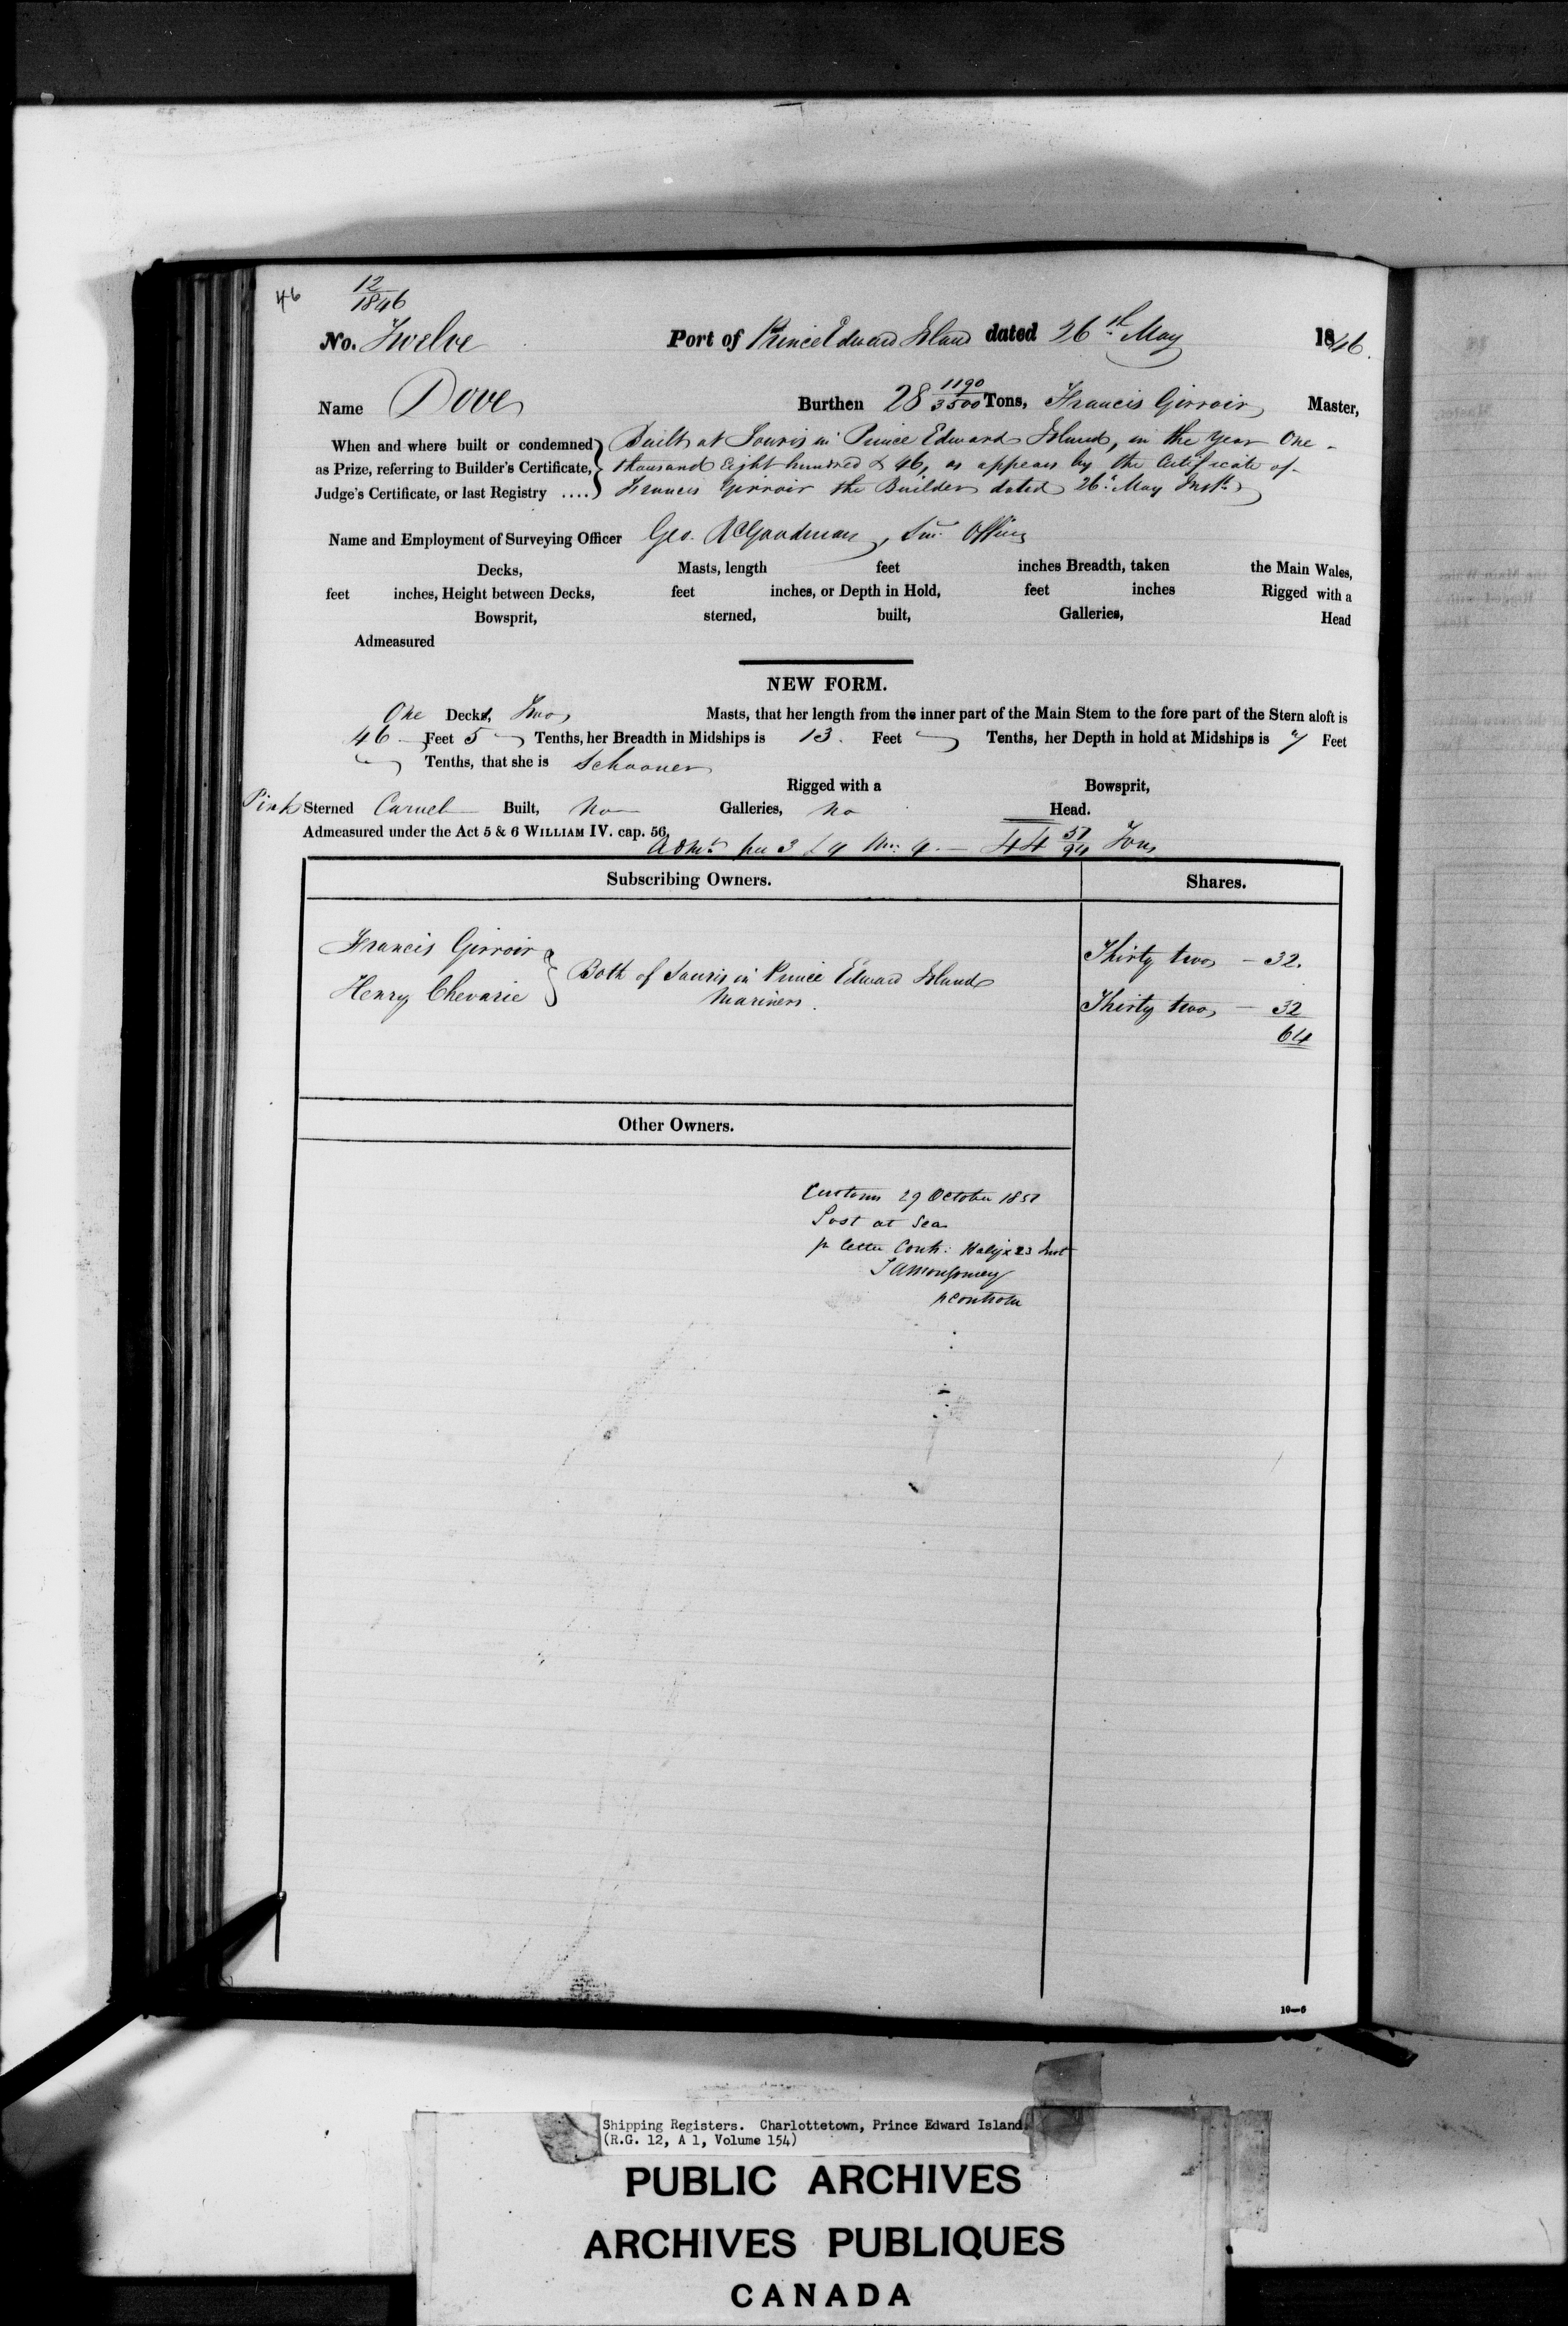 46
12
1846
No. Twelve Port of Prince Edward Island dated 26th May 1846.
Name Dove Burthen 28 1190/3500 Tons, Francis Girroir Master,
When and where built or condemned Built at Souris in Prince Edward Island, in the Year One
as Prize, referring to Builder's Certificate, thousand Eight hundred & 46, as appears by the Certificate of
Judge's Certificate, or last Registry .... Francis Girroir the Builder dated 26th May Inst.
Name and Employment of Surveying Officer Geo. R Goodman, Officer
Decks, Masts, length feet inches Breadth, taken the Main Wales,
feet inches, Height between Decks, feet inches, or Depth in Hold, feet inches Rigged with a
Bowsprit, sterned, built, Galleries, Head
Admeasured
NEW FORM.
One Decks, Two Masts, that her length from the inner part of the Main Stem to the fore part of the Stern aloft is
46 Feet 5 Tenths, her Breadth in Midships is 13 Feet Tenths, her Depth in hold at Midships is 7 Feet
Tenths, that she is Schooner
Rigged with a Bowsprit,
Pink Sterned Carvel Built, No Galleries, No Head.
Admeasured under the Act 5 & 6 WILLIAM IV. cap. 56,
Adm.t per 3 & 4 Wm: 4. — 44 57/94 Tons
Subscribing Owners. Shares.
Francis Girroir Thirty two — 32.
Both of Souris in Prince Edward Island
Henry Chevarie Mariners. Thirty two — 32
64
Other Owners.
Customs 29 October 1851
Lost at Sea
pr letter Contr: Halifx 23 Inst
Montgomery
pControlr
10—6
Shipping Registers. Charlottetown, Prince Edward Island,
(R.G. 12, A 1, Volume 154)
PUBLIC ARCHIVES
ARCHIVES PUBLIQUES
CANADA